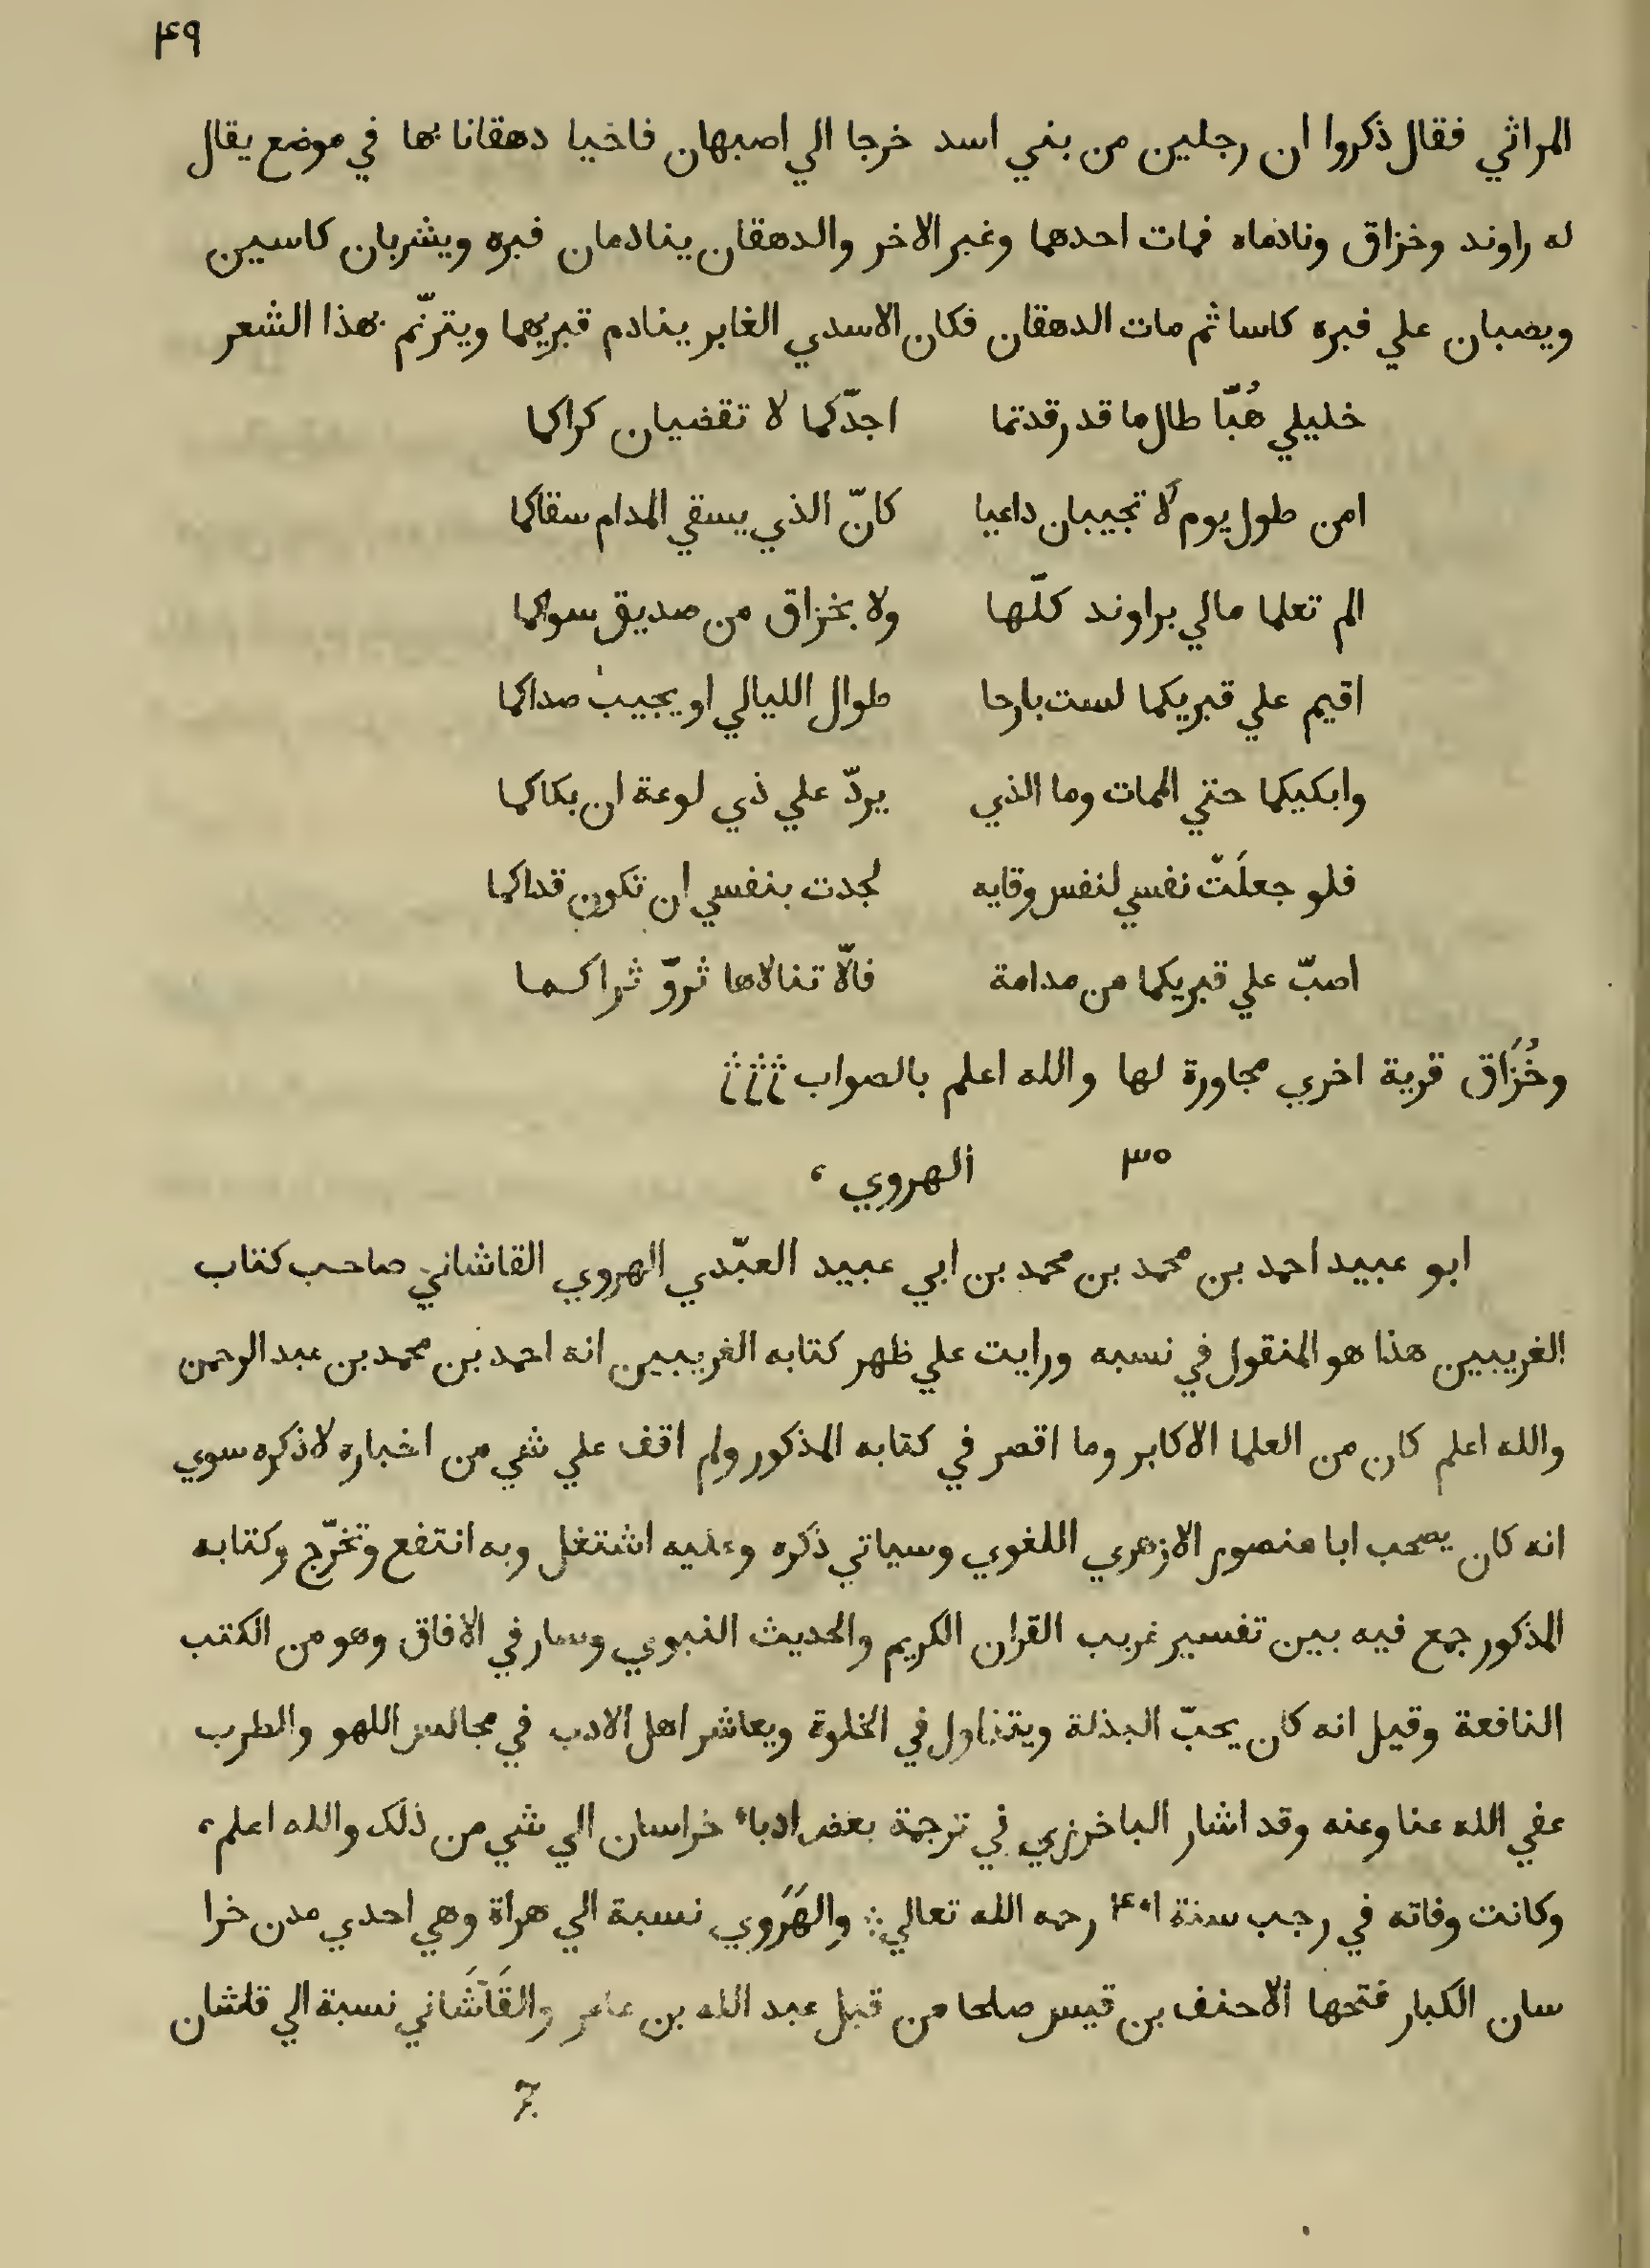 ۴۹
المراثي فقال ذكروا ان رجلين من بني اسد خرجا الي اصبهان فاخيا دهقانا بها في موضع يقال
له راوند وخزاق ونادماه فمات احدهما وغبر الاخر والدهقان ينادمان قبره ويشربان كاسين
ويصبان علي قبره كاسا ثم مات الدهقان فكان الاسدي الغابر ينادم قبريهما ويترنّم بهذا الشعر
خليلي هُبّا طال ما قد رقدتما اجدّكما لا تقضيان كراكما
امن طول يوم لا تجيبان داعيا كانّ الذي يسقي المدام سقاكما
الم تعلما مالي براوند كلّها ولا بخزاق من صديق سواكما
اقيم علي قبريكما لست بارحا طوال الليالي او يجيب صداكما
وابكيكما حتي الممات وما الذي يردّ علي ذي لوعة ان بكاكما
فلو جعلَتْ نفسي لنفس وقايه لجدت بنفسي ان تكون فداكما
اصبّ علي قبريكما من مدامة فالّا تنالاها تُروّ ثراكما
وخُزَاق قرية اخري مجاورة لها والله اعلم بالصواب
۳۰ الهروي ،
ابو عبيد احمد بن محمد بن محمد بن ابي عبيد العبّدي الهروي القاشاني صاحب كتاب
الغريبين هذا هو المنقول في نسبه ورايت علي ظهر كتابه الغريبين انه احمد بن محمد بن عبد الرحمن
والله اعلم كان من العلما الاكابر وما اقصر في كتابه المذكور ولم اقف علي شي من اخباره لاذكره سوي
انه كان يصحب ابا منصور الازهري اللغوي وسياتي ذكره وعليه اشتغل وبه انتفع وتخرّج وكتابه
المذكور جمع فيه بين تفسير غريب القران الكريم والحديث النبوي وسار في الافاق وهو من الكتب
النافعة وقيل انه كان يحبّ البذلة ويتناول في الخلوة ويعاشر اهل الادب في مجالس اللهو والطرب
عفي الله عنا وعنه وقد اشار الباخرزي في ترجمة بعض ادباء خراسان الي شي من ذلك والله اعلم ،
وكانت وفاته في رجب سنة ۴۰۱ رحمه الله تعالي ؞ والهَرَوي نسبة الي هراة وهي احدي مدن خرا
سان الكبار فتحها الاحنف بن قيس صلحا من قبل عبد الله بن عامر والقَاشَاني نسبة الي قاشان